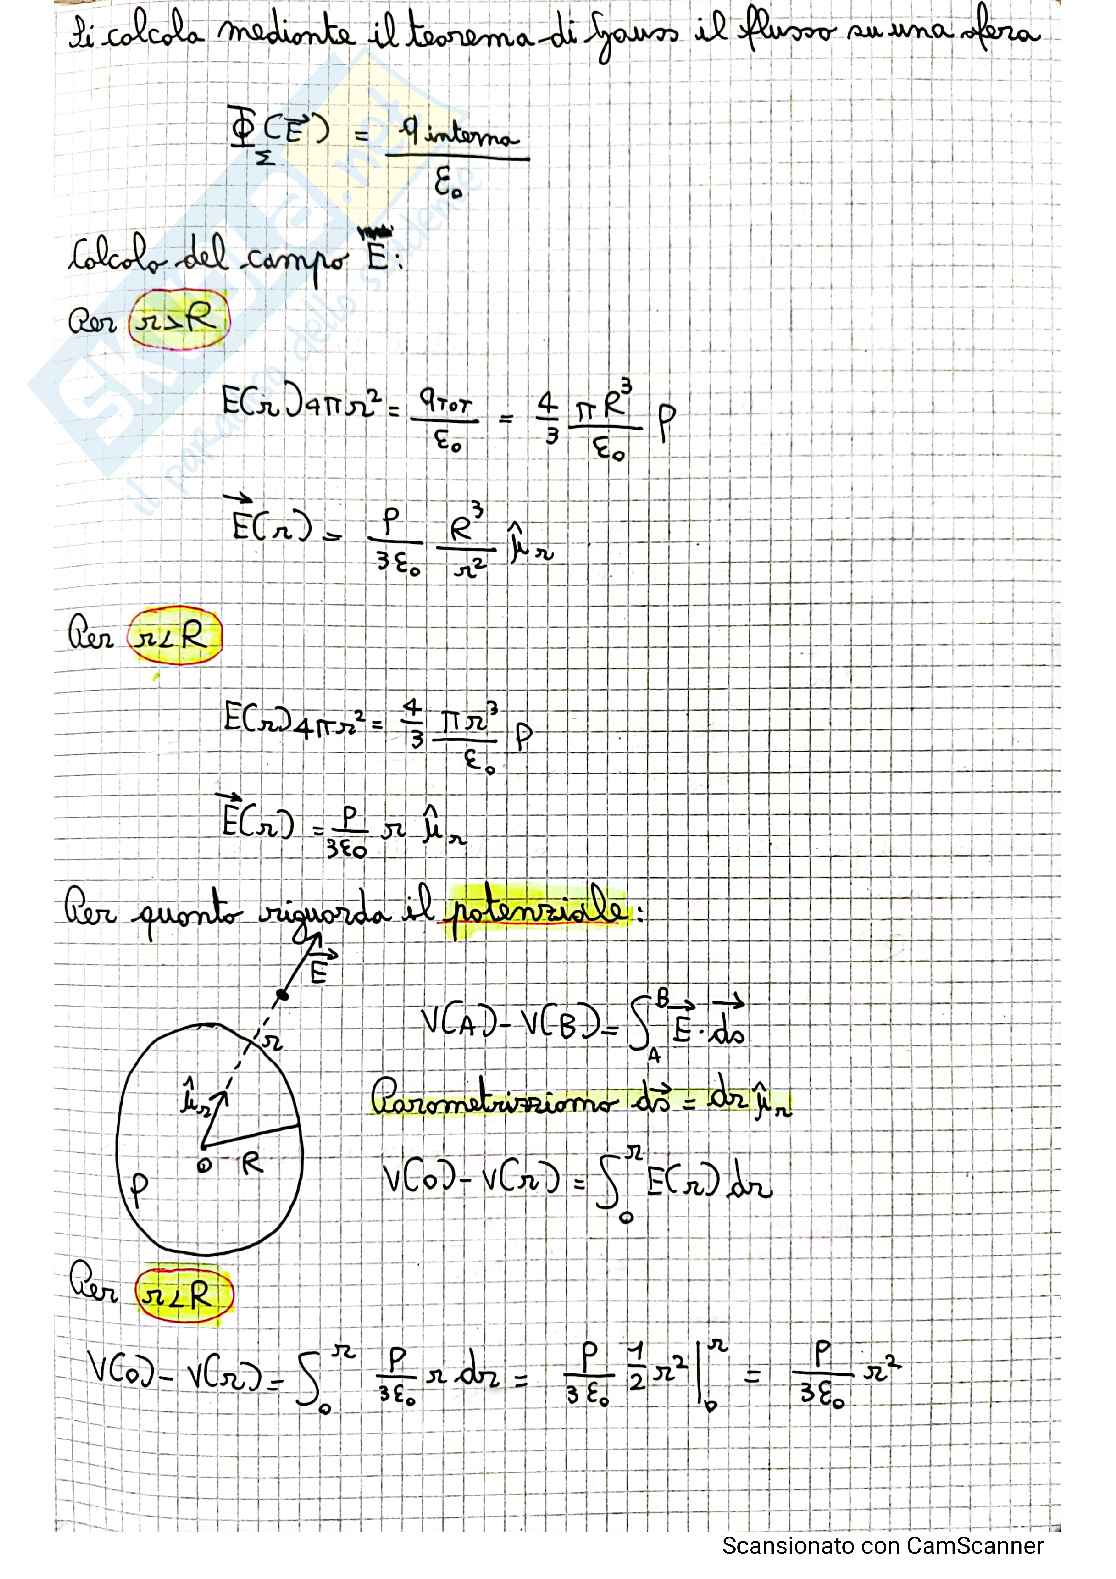 Si calcola mediante il teorema di Gauss il flusso su una sfera
Φ_Σ(E⃗) = q interna / ε₀
Calcolo del campo E⃗:
Per r>R
E(r)4πr² = q_TOT / ε₀ = 4/3 πR³/ε₀ ρ
E⃗(r) = ρ/3ε₀ R³/r² μ̂_r
Per r<R
E(r)4πr² = 4/3 πr³/ε₀ ρ
E⃗(r) = ρ/3ε₀ r μ̂_r
Per quanto riguarda il potenziale:
E⃗
r
μ̂_r
O R
ρ
V(A)-V(B) = ∫_A^B E⃗·ds⃗
Parametrizziamo ds⃗ = dr μ̂_r
V(0)-V(r) = ∫_0^r E(r) dr
Per r<R
V(0)-V(r) = ∫_0^r ρ/3ε₀ r dr = ρ/3ε₀ 1/2 r² |_0^r = ρ/3ε₀ r²
SKUOLA.net
il paradiso dello studente
Scansionato con CamScanner